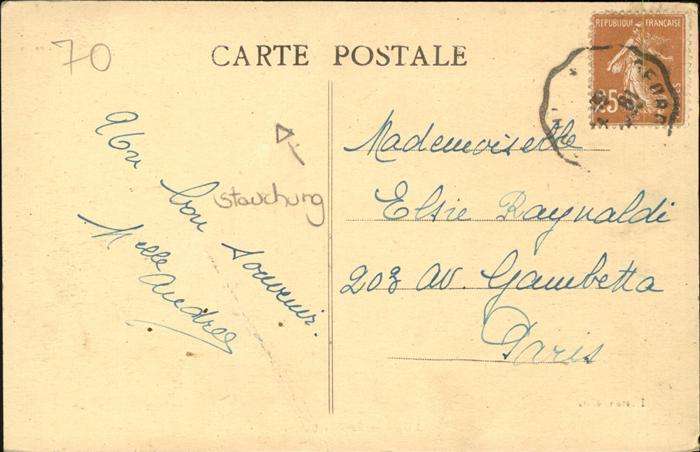 70
CARTE POSTALE
RÉPUBLIQUE FRANÇAISE
25c
stauchung
bon souvenir.
Melle Andrée
Mademoiselle
Elsie Raynaldi
203 av. Gambetta
Paris